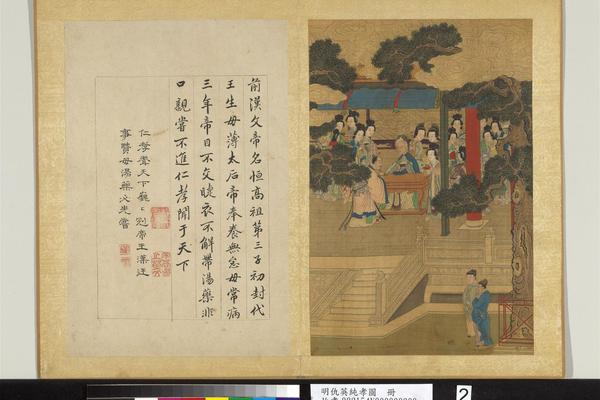 前漢文帝名恒高祖第三子初封代
王生母薄太后帝奉養無怠母常病
三年帝目不交睫衣不解帶湯藥非
口親嘗不進仁孝聞于天下
仁孝聞天下巍〻冠帝王漢廷
事賢母湯藥必先嘗
明仇英純孝圖 冊
2